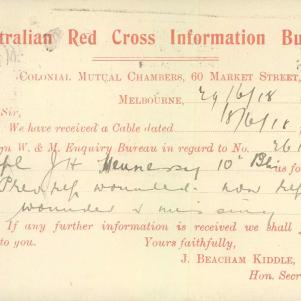 stralian Red Cross Information Bu
COLONIAL MUTUAL CHAMBERS, 60 MARKET STREET,
MELBOURNE, 29/6/18
Sir,
We have received a Cable dated 18/6/18
gn W. & M. Enquiry Bureau in regard to No. 261
pl J H Hennessy 10th Bn as fo
Prev rep wounded. now rep
wounded & missing
If any further information is received we shall
to you. Yours faithfully,
J. BEACHAM KIDDLE,
Hon. Secre